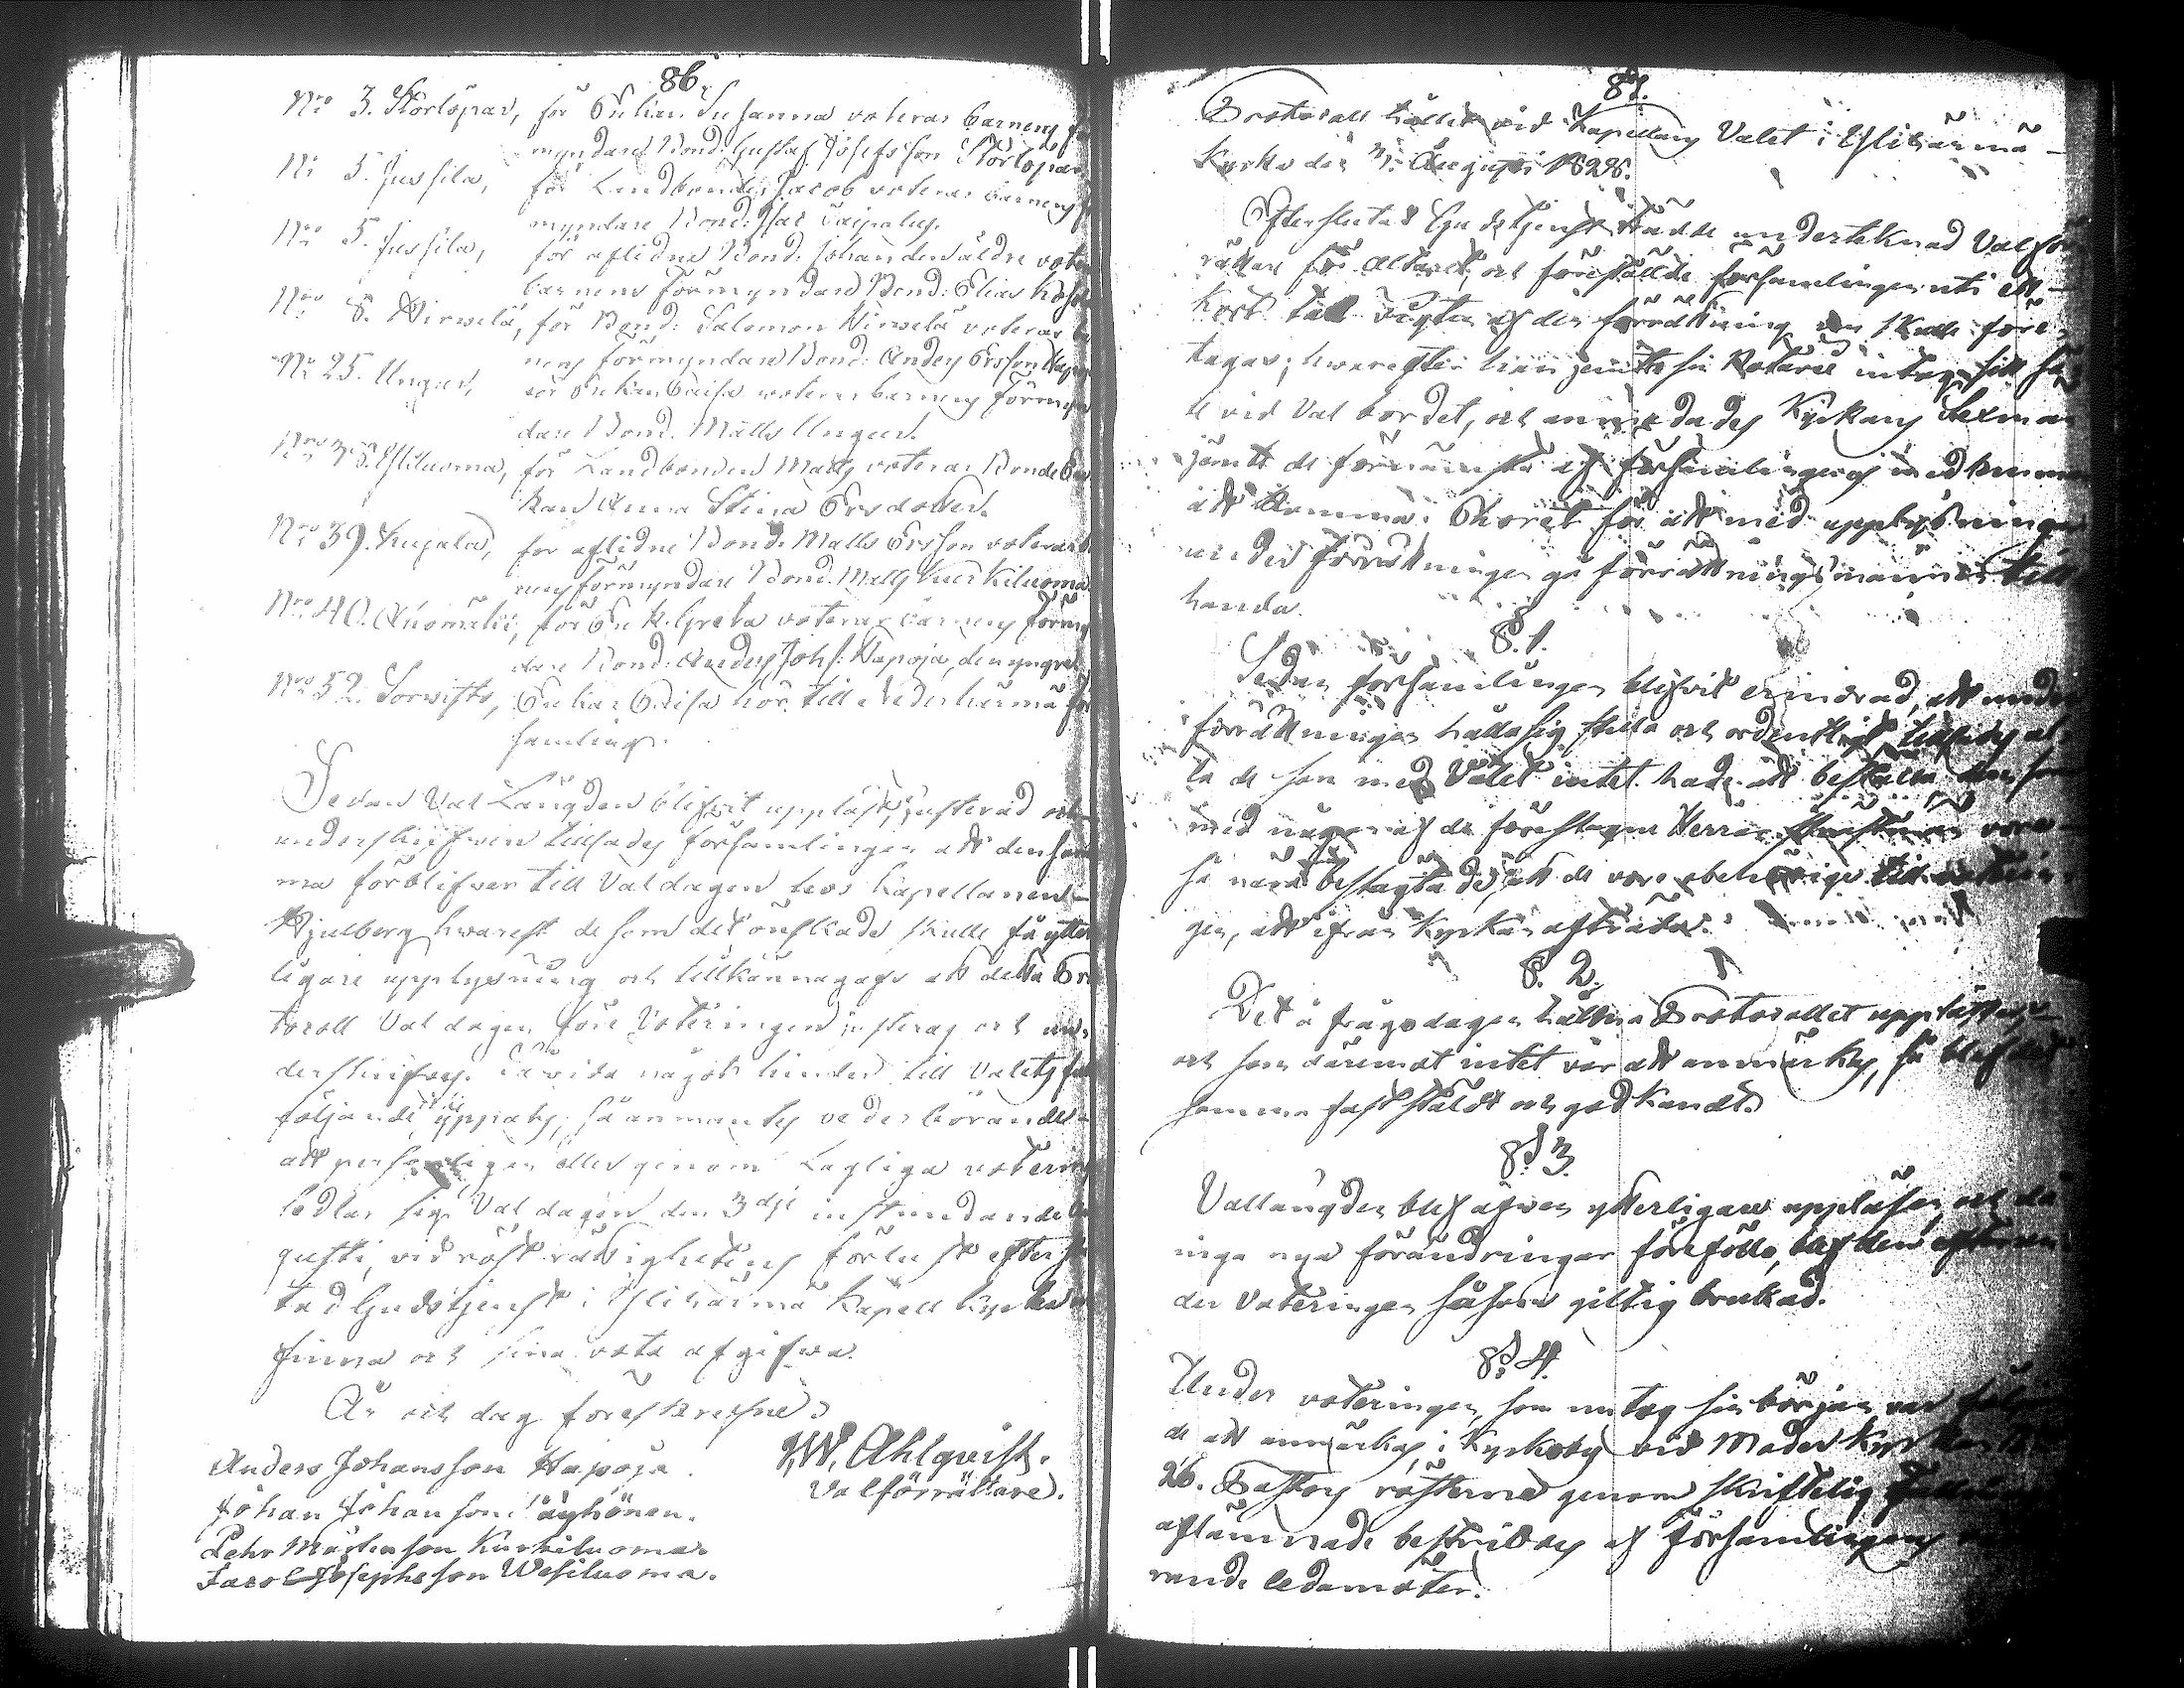 86.
Nro 3. Störlöpar, för Enkan Susanna voterar barnens för
myndare Bond: Gustaf Josefsson Störlöpar
Nro 5. Jussila, för Landbonden Jacob voterar barnens
myndare Bond: Isac Taipalus.
Nro 5. Jussila, för aflidne Bond: Johan den äldre voter
barnens förmyndare Bond: Elias
Nro 8. Wirwelä, för Bond: Salomon Wirwelä voterar
nens förmyndare Bond: Anders Ersson
Nro 25. Ungur, för Enkan Caisa voterar barnens förmyn
dare Bond. Matts Ungur.
Nro 38. Yliluoma, för Landbonden Matts voterar Bonde En
kan Anna Stina Ersdotter.
Nro 39. Kujala, för aflidne Bond: Matts Ersson voterar
nens förmyndare Bond. Matts Kurkiluoma
Nro 40. för Enk. Greta voterar barnens förmyn
dare Bond: Anders Johs: Hapoja, den yngre
Nro 52. Sorwisto, Enkan Caisa hör till Nederhärmä för
samling.
Sedan Val Längden blifvit uppläst, justerad och
underskrifven tillsades församlingen att densam
ma förblifver till Valdagen hos Kapellanen
Hjulberg hwarest de som det önskade skulle få ytter
ligare upplysning och tillkännagafs att detta Pro
tocoll Valdagen före Voteringen justeras och un
derskrifves. Såvida något hinder till Valets
följande uppsköts, så anmantes vederbörande
att personligen eller genom Lagliga voterings
sedlar sig Valdagen den 3dje instundande Au
gusti, vid röst rättighetens förlust efter slu
tad Gudstjenst i Ylihärmä Kapell Kyrka in
finna och sina vota afgifva.
År och dag föreskrefne.
J.W. Ahlqvist.
Valförrättare.
Anders Johansson Hapoja.
Johan Johansson Päyhönen.
Pehr Mårtensson Kurkiluoma
Jacob Josephsson Wesiluoma.
87.
Protocoll hållit vid Kapellans Valet i Ylihärmä
Kyrka den 3. Augusti 1828.
Efter slutad Gudstjenst trädde undertecknad Valför
rättare för Altaret, och föreställde församlingen uti ett
kort tal vigten af den förrättning som skulle före
tagas; hwarefter han jemte sin Notarie intog sitt sä
te vid Val bordet, och anmodades Kyrkans Sexman
jemte de förnämsta af församlingens medlemmar
att komma i Choret för att med upplysningar
under förrättningen gå förrättningsmannen till
handa.
§. 1.
Sedan församlingen blifvit erinrad, att under
förrättningen hålla sig stilla och ordentligt, tillsades al
la de som med Valet intet hade att beställa eller som
med någon af de föreslagne Herrar voro
så nära beslägtade, att de voro obehörige till voterin
gen, att ifrån Kyrkan afträda.
§. 2.
Det å frågodagen hållna Protocollet upplästes
och som däremot intet var att anmärka, så blef det
samma fastställdt och godkändt.
§ 3.
Vallängden blef äfven ytterligare uppläsen, och då
inga nya förändringar föreföllo, blef den
der Voteringen såsom giltig brukad.
§ 4.
Under voteringen, som nu tog sin början var följan
de att anmärka, i Kyrkoby vid Moder Kyrkan
26. Pastors rösterne genom skriftelig
aflämnade bestriddes af församlingens
rande ledamöter.